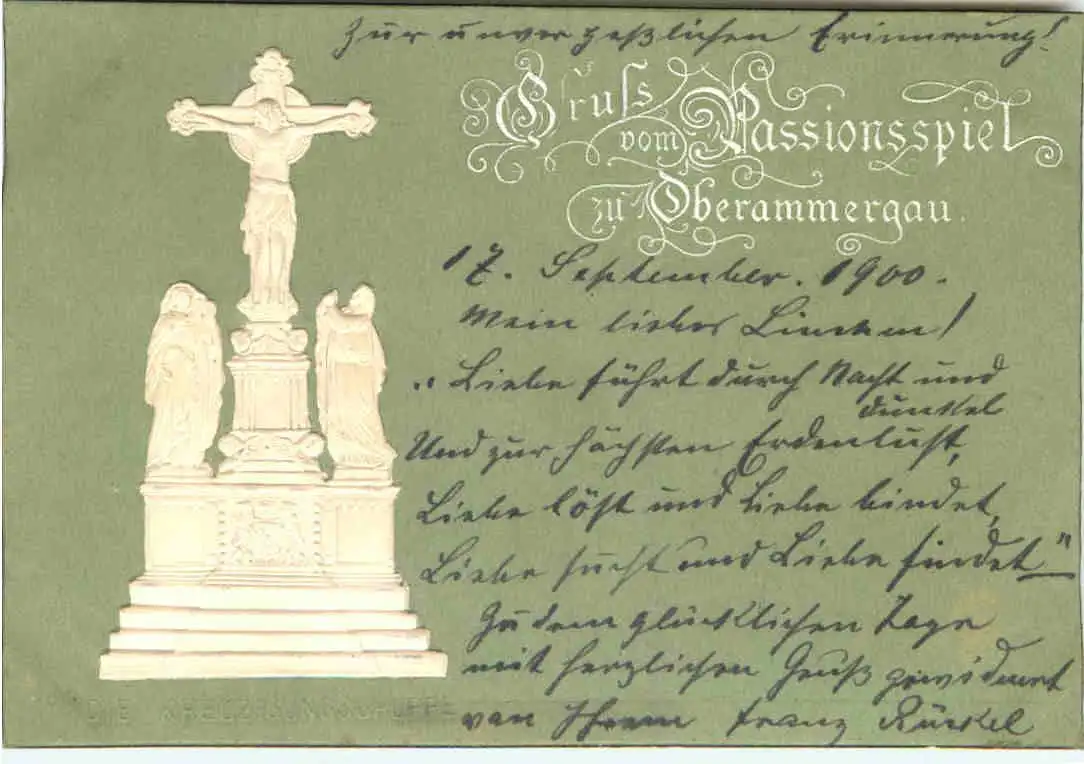 Zur unvergeßlichen Erinnerung!
Gruss
vom Passionsspiel
zu Oberammergau.
17. September. 1900.
Mein liebes Linchen!
„Liebe führt durch Nacht und
dunkel
Und zur höchsten Erdenlust,
Liebe löst und Liebe bindet,
Liebe sucht und Liebe findet"
Zu dem glücklichen Tage
mit herzlichen Gruß gewidmet
DIE KREUZIGUNGSGRUPPE
von Ihrem Franz Rückel